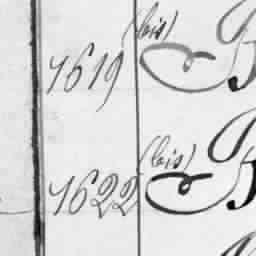 1619 (bis)
1622 (bis)